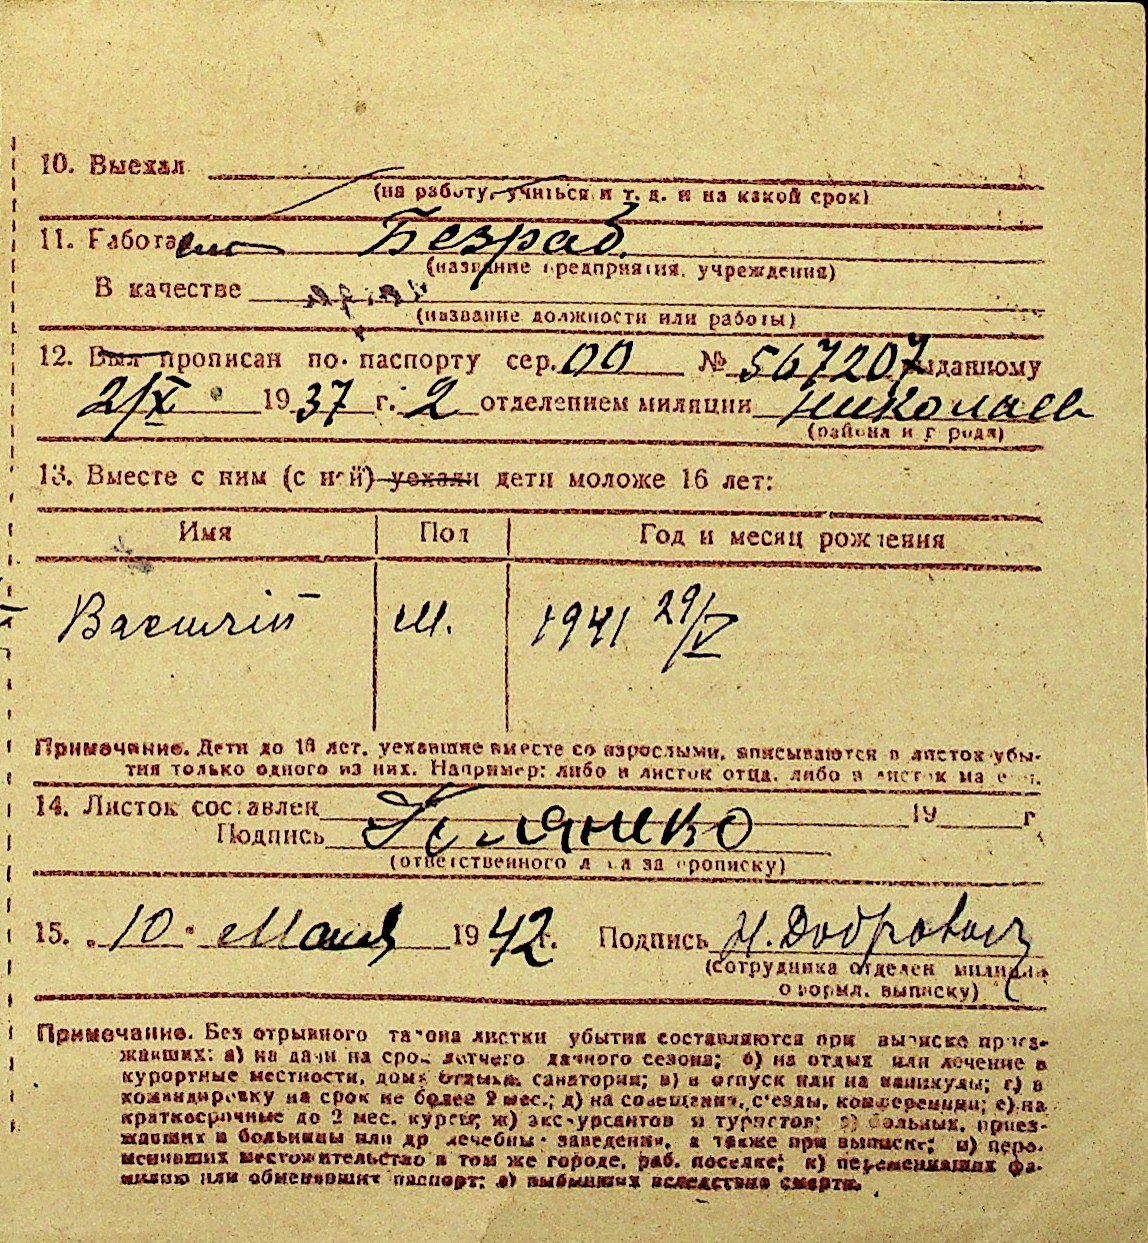 10. Выехал
(на работу, учиться и т. д. и на какой срок)
11. Работа Безраб.
(название предприятия, учреждения)
В качестве
(название должности или работы)
12. Был прописан по паспорту сер. 00 № 567207 выданному
2/X 1937 г. 2 отделением милиции Николаев
(района и города)
13. Вместе с ним (с ней) уехали дети моложе 16 лет:
Имя Пол Год и месяц рождения
Василий м. 1941 29/V
Примечание. Дети до 16 лет, уехавшие вместе со взрослыми, вписываются в листок убы-
тия только одного из них. Например: либо в листок отца, либо в листок матери.
14. Листок составлен 19 г
Подпись
(ответственного лица за прописку)
15. 10 Мая 1942 г. Подпись Н. Добровольс
(сотрудника отделен милиции
оформл. выписку)
Примечание. Без отрывного талона листки убытия составляются при выписке приез-
жавших: а) на дачи на срок летнего дачного сезона; б) на отдых или лечение в
курортные местности, дома отдыха, санатории; в) в отпуск или на каникулы; г) в
командировку на срок не более 2 мес.; д) на совещания, с'езды, конференции; е) на
краткосрочные до 2 мес. курсы; ж) экскурсантов и туристов; з) больных, приез-
жавших в больницы или др лечебны заведения, а также при выписке; и) пере-
менивших местожительство в том же городе, раб. поселке; к) переменивших фа-
милию или обменявших паспорт; л) выбывших вследствие смерти.